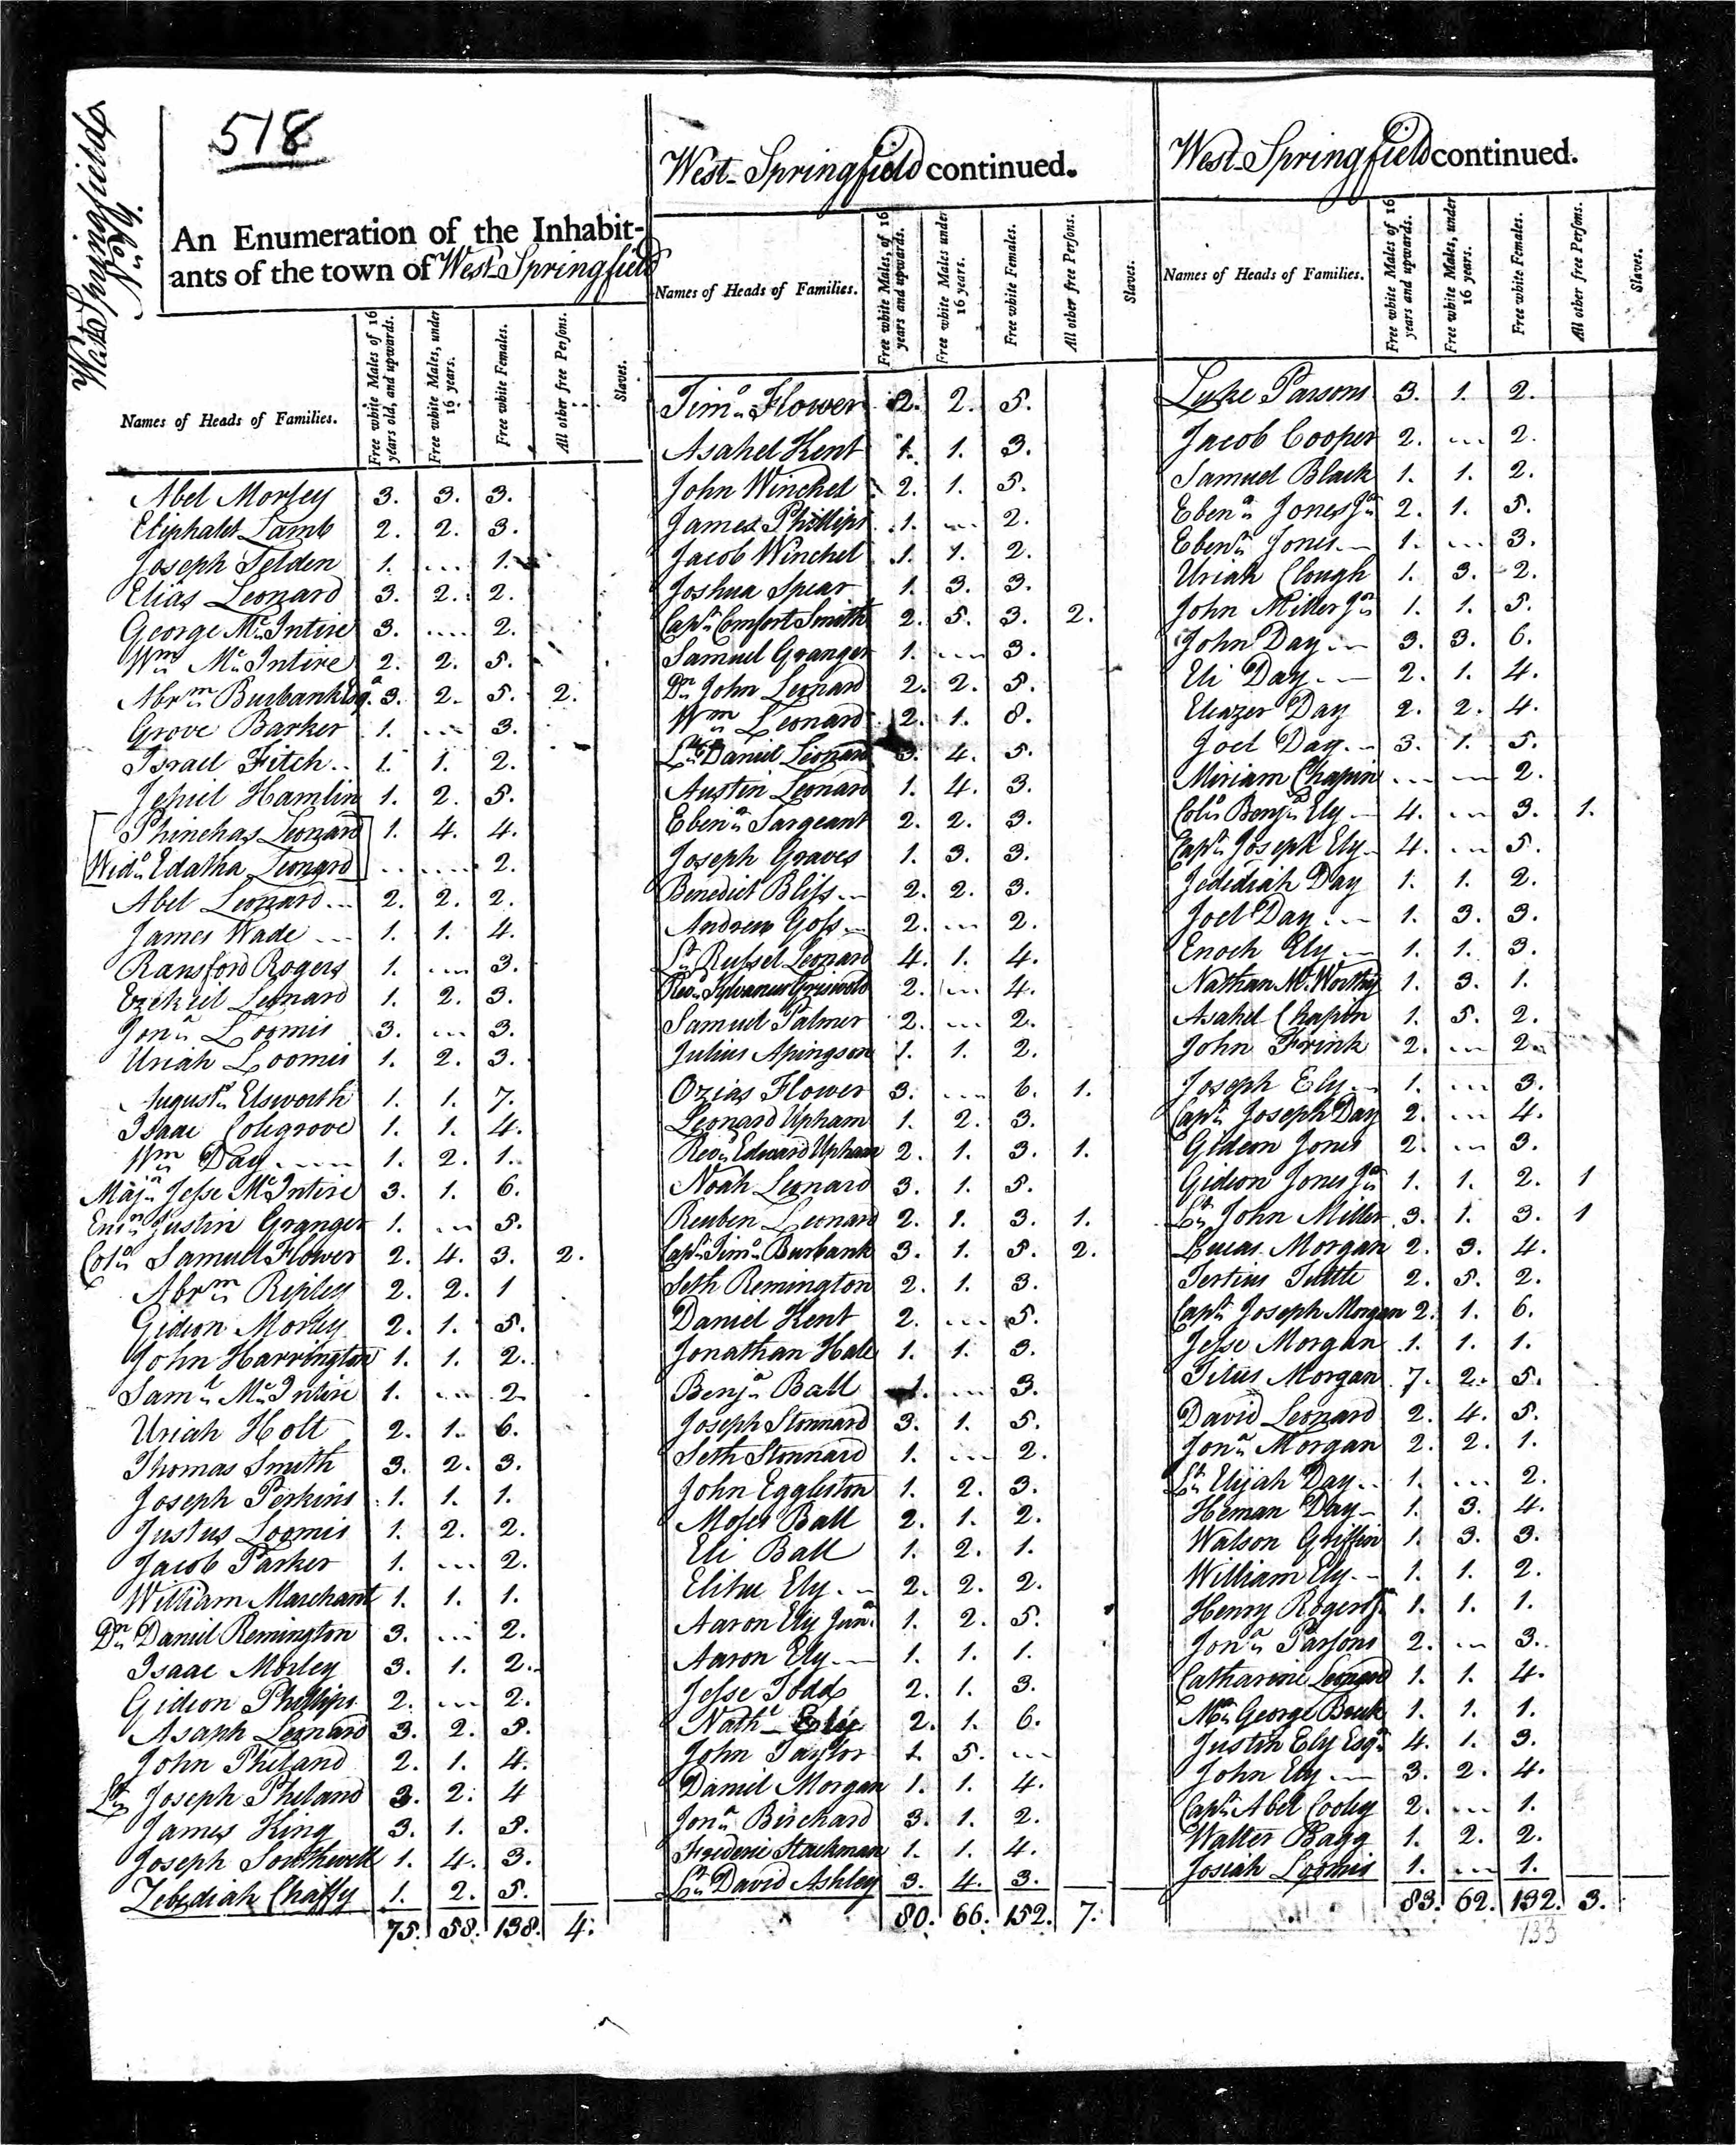 West Springfield
No. 9.
518
An Enumeration of the Inhabit-
ants of the town of West Springfield
Names of Heads of Families.
Free white Males of 16 years old, and upwards.
Free white Males, under 16 years.
Free white Females.
All other free Persons.
Slaves.
Abel Morley 3. 3. 3.
Eliphalet Lamb 2. 2. 3.
Joseph Selden 1. ... 1.
Elias Leonard 3. 2. 2.
George McIntire 3. .... 2.
Wm McIntire 2. 2. 5.
Abrm Burbank Esq. 3. 2. 5. 2.
Grove Barker 1. ... 3.
Israel Fitch.. 1. 1. 2.
Jehiel Hamlin 1. 2. 5.
Phinehas Leonard 1. 4. 4.
Wido Edatha Leonard ... .... 2.
Abel Leonard... 2. 2. 2.
James Wade ... 1. 1. 4.
Ransford Rogers 1. ... 3.
Ezekiel Leonard 1. 2. 3.
Jona Loomis 3. ... 3.
Uriah Loomis 1. 2. 3.
Augusts Elsworth 1. 1. 7.
Isaac Colegrove 1. 1. 4.
Wm Day..... 1. 2. 1.
Majr Jesse McIntire 3. 1. 6.
Ensn Justin Granger 1. ... 5.
Colo Samuel Flower 2. 4. 3. 2.
Abrm Ripley 2. 2. 1
Gideon Morley 2. 1. 5.
John Harrington 1. 1. 2.
Saml McIntire 1. ... 2
Uriah Holt 2. 1. 6.
Thomas Smith 3. 2. 3.
Joseph Perkins 1. 1. 1.
Justus Loomis 1. 2. 2.
Jacob Parker 1. ... 2.
William Marchant 1. 1. 1.
Dn Daniel Remington 3. ... 2.
Isaac Morley 3. 1. 2.
Gideon Phillips 2. ... 2.
Asaph Leonard 3. 2. 5.
John Pheland 2. 1. 4.
Lt Joseph Pheland 3. 2. 4
James King 3. 1. 3.
Joseph Southwell 1. 4. 3.
Zebediah Chaffy 1. 2. 5.
75. 58. 138. 4.
West-Springfield continued.
Names of Heads of Families.
Free white Males, of 16 years and upwards.
Free white Males under 16 years.
Free white Females.
All other free Persons.
Slaves.
Timo Flower 2. 2. 5.
Asahel Kent 1. 1. 3.
John Winchel 2. 1. 5.
James Phillips 1. ... 2.
Jacob Winchel 1. 1. 2.
Joshua Spear 1. 3. 3.
Capt Comfort Smith 2. 5. 3. 2.
Samuel Granger 1. ... 3.
Dn John Leonard 2. 2. 5.
Wm Leonard 2. 1. 8.
Lt Daniel Leonard 3. 4. 5.
Austin Leonard 1. 4. 3.
Ebenr Sargeant 2. 2. 3.
Joseph Graves 1. 3. 3.
Benedict Bliss ... 2. 2. 3.
Andrew Goss ... 2. ... 2.
Lt Russel Leonard 4. 1. 4.
Revd Sylvanus Griswold 2. ... 4.
Samuel Palmer 2. ... 2.
Julius Apingson 1. 1. 2.
Ozias Flower 3. ... 6. 1.
Leonard Upham 1. 2. 3.
Revd Edward Upham 2. 1. 3. 1.
Noah Leonard 3. 1. 5.
Reuben Leonard 2. 1. 3. 1.
Capt Timo Burbank 3. 1. 5. 2.
Seth Remington 2. 1. 3.
Daniel Kent 2. ... 5.
Jonathan Hale 1. 1. 3.
Benja Ball 1. ... 3.
Joseph Stonnard 3. 1. 5.
Seth Stonnard 1. ... 2.
John Eggleston 1. 2. 3.
Moses Ball 2. 1. 2.
Eli Ball 1. 2. 1.
Elihu Ely... 2. 2. 2.
Aaron Ely Junr 1. 2. 5.
Aaron Ely... 1. 1. 1.
Jesse Todd 2. 1. 3.
Nathl Ely 2. 1. 6.
John Taylor 1. 5. ...
Daniel Morgan 1. 1. 4.
Jona Birchard 3. 1. 2.
Frederic Stackman 1. 1. 4.
Lt David Ashley 3. 4. 3.
80. 66. 152. 7.
West-Springfield continued.
Names of Heads of Families.
Free white Males of 16 years and upwards.
Free white Males, under 16 years.
Free white Females.
All other free Persons.
Slaves.
Luke Parsons 3. 1. 2.
Jacob Cooper 2. ... 2.
Samuel Black 1. 1. 2.
Ebenr Jones Jr 2. 1. 5.
Ebenr Jones... 1. ... 3.
Uriah Clough 1. 3. 2.
John Miller Jr 1. 1. 5.
John Day ... 3. 3. 6.
Eli Day... 2. 1. 4.
Eleazer Day 2. 2. 4.
Joel Day... 3. 1. 5.
Miriam Chapin ... ... 2.
Colo Benjn Ely 4. ... 3. 1.
Capt Joseph Ely 4. ... 5.
Jedediah Day 1. 1. 2.
Joel Day... 1. 3. 3.
Enoch Ely... 1. 1. 3.
Nathan McWorthy 1. 3. 1.
Asahel Chapin 1. 5. 2.
John Frink 2. ... 2.
Joseph Ely... 1. ... 3.
Capt Joseph Day 2. ... 4.
Gideon Jones 2. ... 3.
Gideon Jones Jr 1. 1. 2. 1
Lt John Miller 3. 1. 3. 1
Lucas Morgan 2. 3. 4.
Tertius Tuttle 2. 5. 2.
Capt Joseph Morgan 2. 1. 6.
Jesse Morgan 1. 1. 1.
Titus Morgan 7. 2. 5.
David Leonard 2. 4. 5.
Jona Morgan 2. 2. 1.
Lt Elijah Day.. 1. ... 2.
Heman Day... 1. 3. 4.
Walson Griffin 1. 3. 3.
William Ely... 1. 1. 2.
Henry Rogers 1. 1. 1.
Jona Parsons 2. ... 3.
Catharine Leonard 1. 1. 4.
Mr George Breck 1. 1. 1.
Justin Ely Esqr 4. 1. 3.
John Ely... 3. 2. 4.
Capt Abel Cooley 2. ... 1.
Walter Bagg 1. 2. 2.
Josiah Loomis 1. ... 1.
83. 62. 132. 3.
133